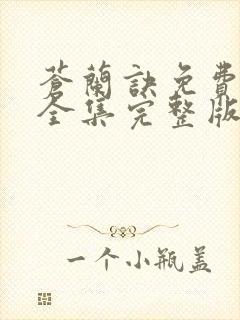 蒼蘭訣免費
全集完整版
一个小瓶盖